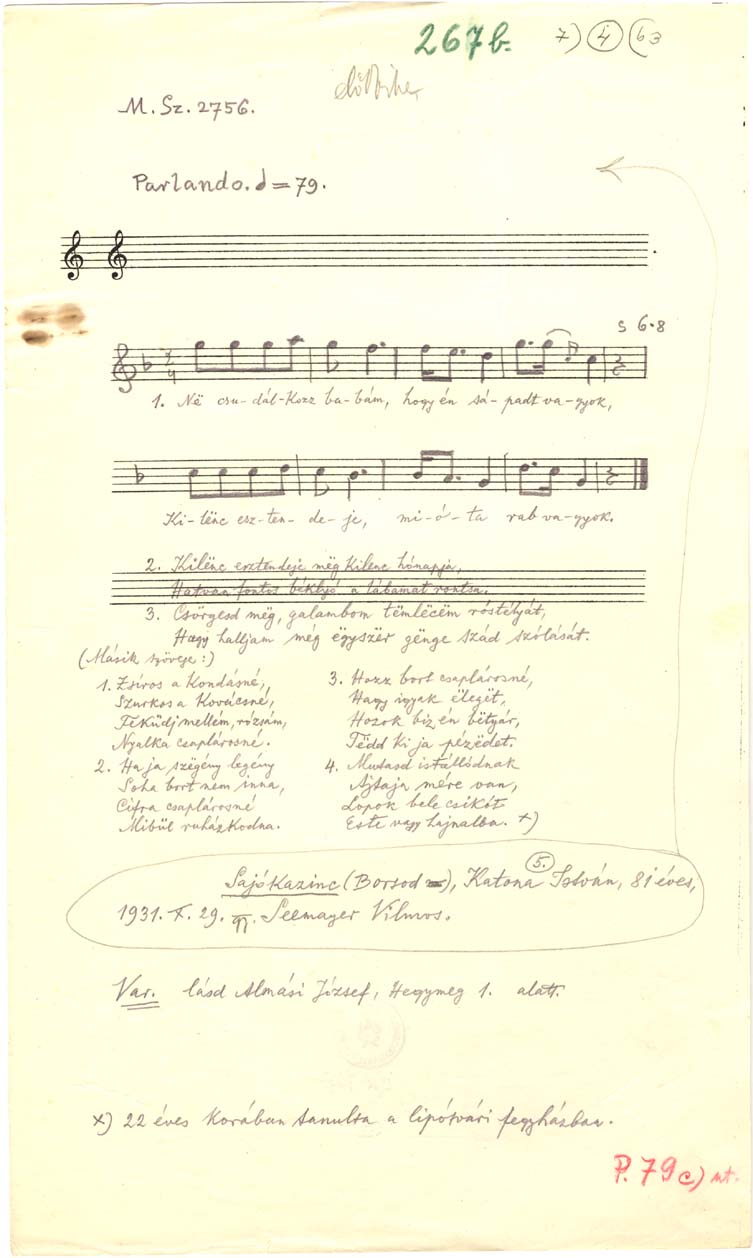 267b. 7) 4 (63
M. Sz. 2756.
Parlando. = 79.
s 6·8
1. Në csu-dál-kozz ba-bám, hogy én sá-padt va-gyok,
Ki-lënc esz-ten-de-je, mi-ó-ta rab va-gyok.
2. Kilënc esztendeje mëg kilenc hónapja,
Hatvan fontos béklyó a lábamat rontsa.
3. Csörgesd mëg, galambom tëmlëcëm róstélyát,
Hagy halljam még ëgyszër gënge szád szólását.
(Másik szövege:)
1. Zsíros a Kondásné,
Szurkos a Kovácsné,
Feküdj mellém, rózsám,
Nyalka csaplárosné.
2. Ha ja szëgény legény
Soha bort nem inna,
Cifra csaplárosné
Mibül ruházkodna.
3. Hozz bort csaplárosné,
Hagy igyak ëlegët,
Hozok biz én bëtyár,
Tëdd ki ja pézëdet.
4. Mutasd istállódnak
Ajtaja mére van,
Lopok bele csikót
Este vagy hajnalba. x)
Sajókazinc (Borsod), Katona István, 81 éves, 5.
1931. X. 29. Seemayer Vilmos.
Var. lásd Almási József, Hegymeg 1. alatt.
x) 22 éves korában tanulta a lipótvári fegyházban.
P. 79 c) mt.